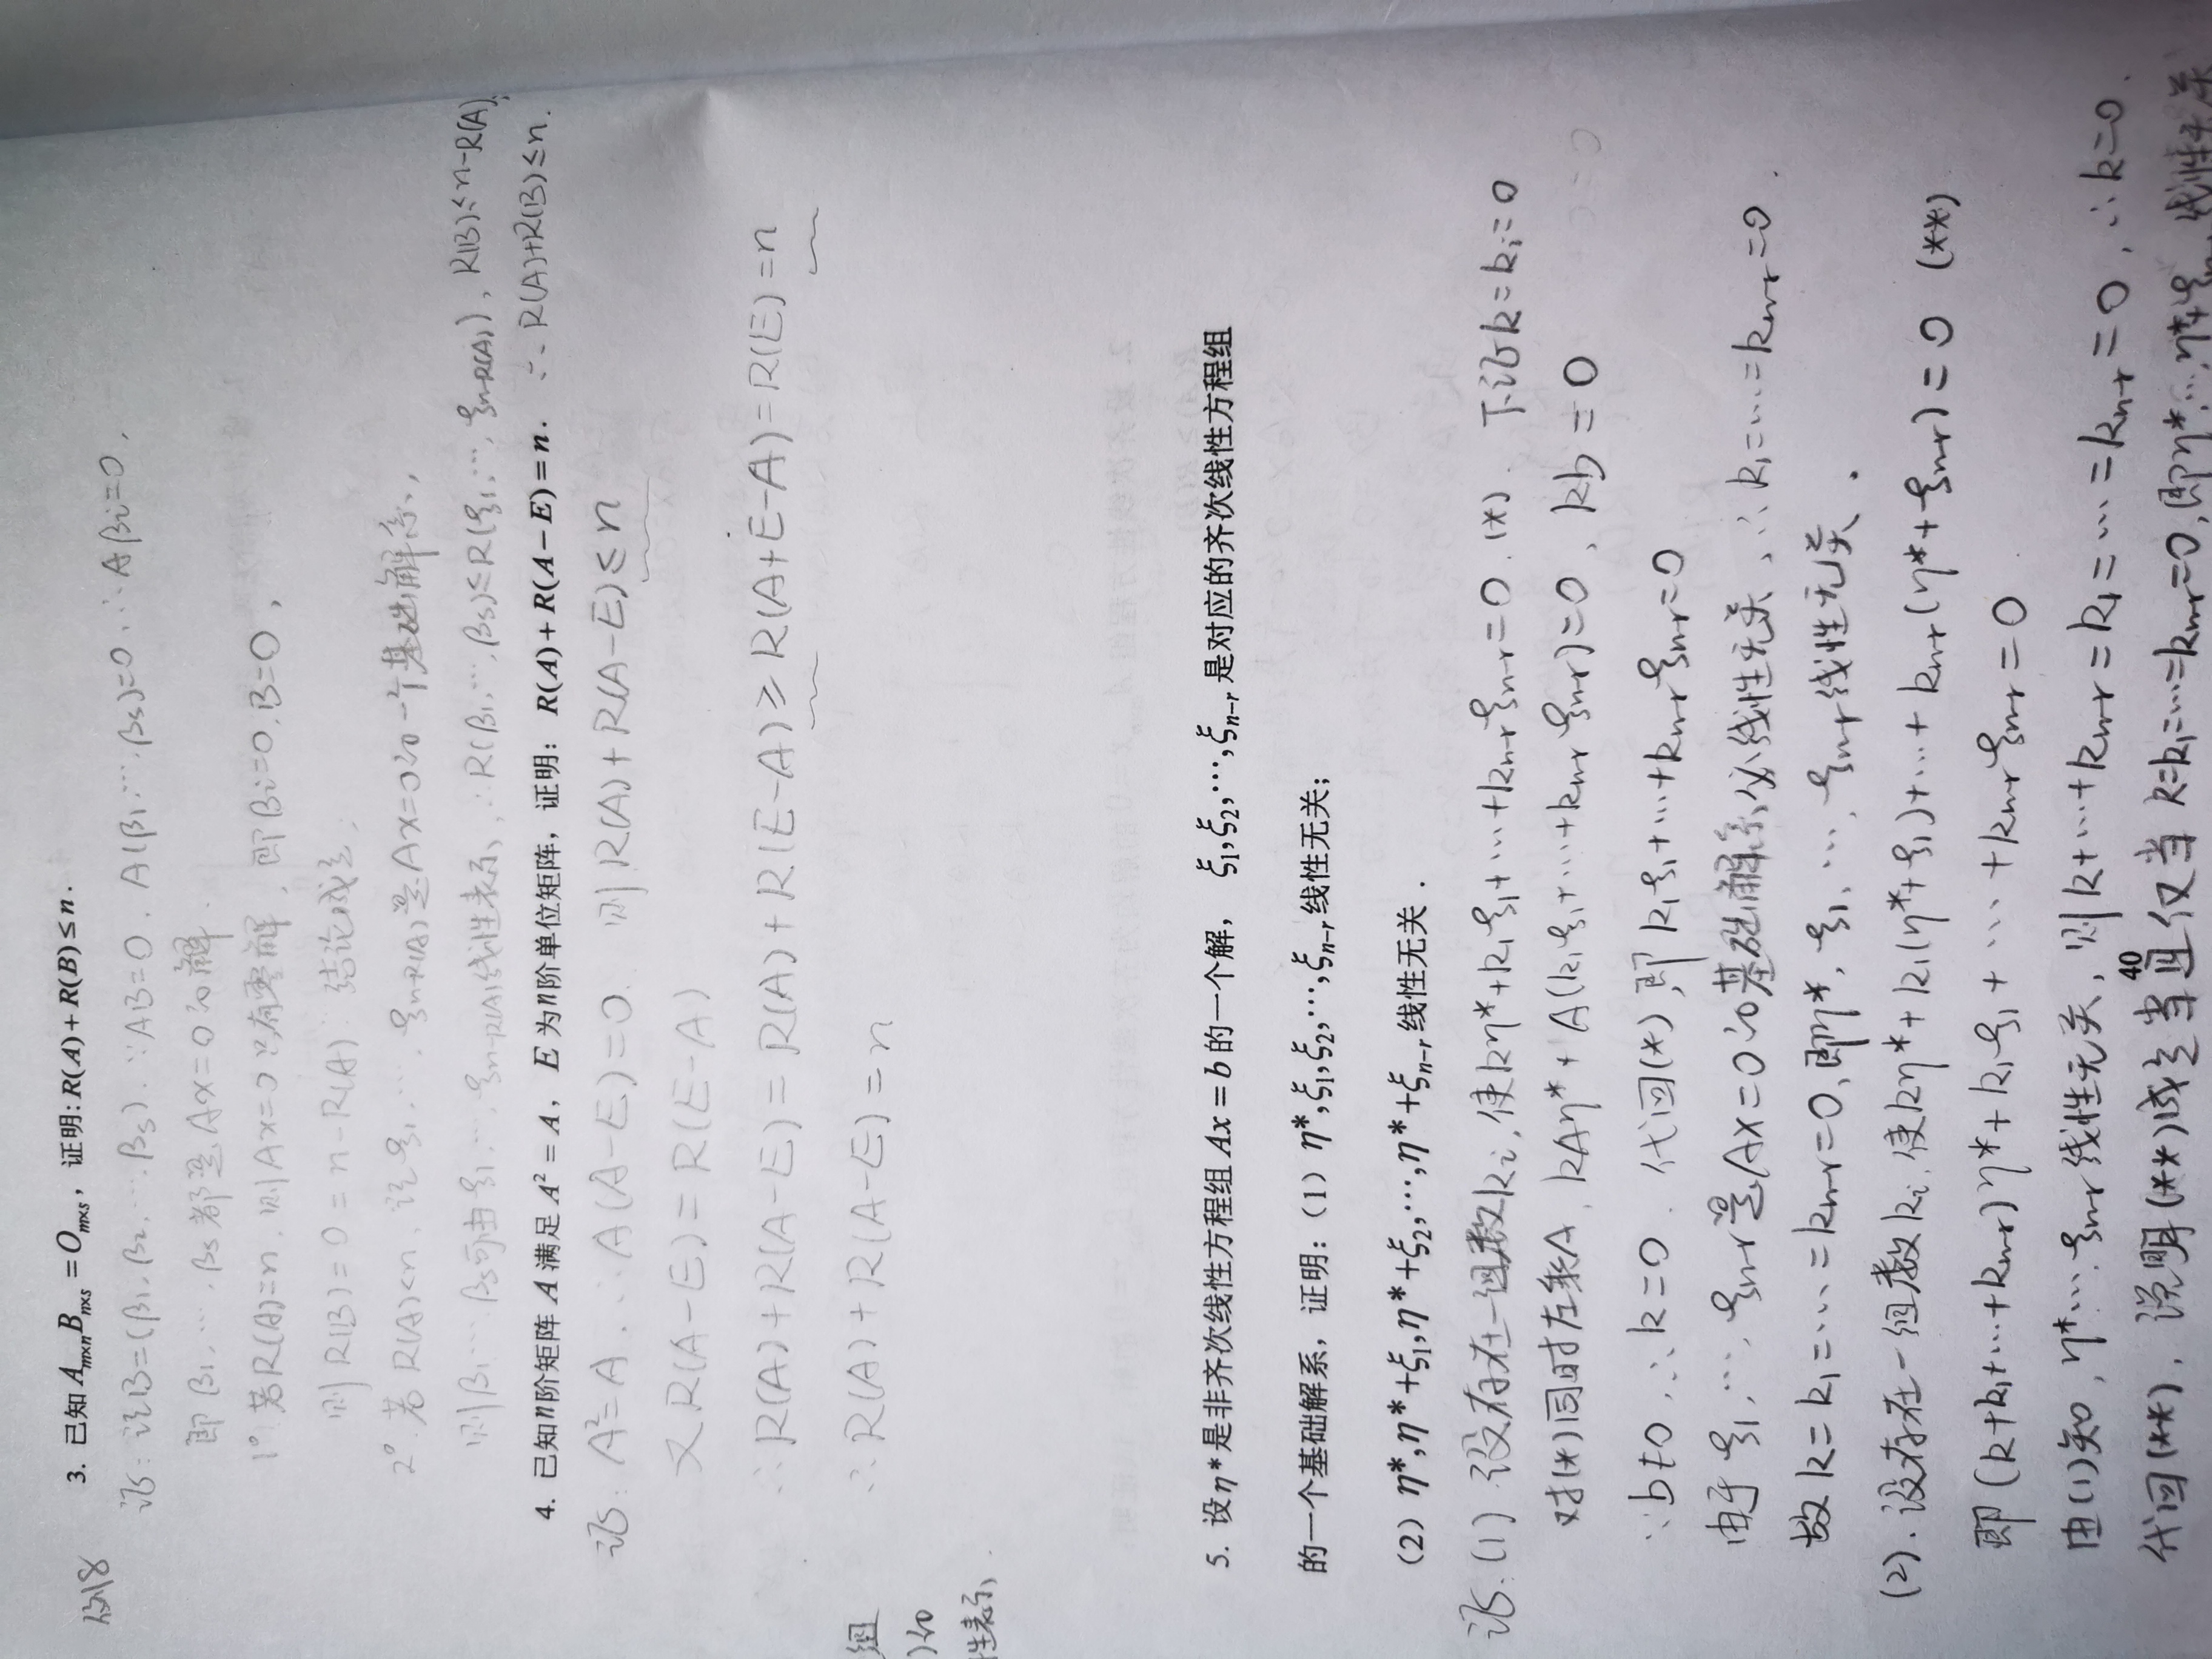 例8
3. 已知 A_{m×n}B_{n×s} = O_{m×s}，证明: R(A)+R(B)≤n.
证: 设B=(β₁, β₂, … βs). ∵AB=0. A(β₁…βs)=0, ∴Aβi=0,
即 β₁, …, βs 都是 Ax=0的解.
1° 若R(A)=n, 则Ax=0只有零解, 即βi=0, B=0,
则 R(B)=0=n-R(A) 结论成立,
2° 若 R(A)<n, 设ξ₁, …, ξ_{n-R(A)}是Ax=0的一个基础解系,
则β₁…βs可由ξ₁, …, ξ_{n-R(A)}线性表示, ∴R(β₁, …, βs)≤R(ξ₁, …, ξ_{n-R(A)}), R(B)≤n-R(A),
∴R(A)+R(B)≤n.
4. 已知n阶矩阵 A 满足 A² = A， E 为n阶单位矩阵，证明： R(A)+R(A−E)=n.
证: A²=A. ∴A(A-E)=0. 则R(A)+R(A-E)≤n
又R(A-E)=R(E-A)
∴R(A)+R(A-E)=R(A)+R(E-A)≥R(A+E-A)=R(E)=n
∴R(A)+R(A-E)=n
组
)的
性表示.
5. 设η*是非齐次线性方程组 Ax=b 的一个解， ξ₁,ξ₂,⋯,ξ_{n-r} 是对应的齐次线性方程组
的一个基础解系，证明：（1）η*,ξ₁,ξ₂,⋯,ξ_{n-r}线性无关；
（2）η*,η*+ξ₁,η*+ξ₂,⋯,η*+ξ_{n-r}线性无关．
证: (1) 设存在一组数ki, 使kη*+k₁ξ₁+…+k_{n-r}ξ_{n-r}=0. (*). 下证k=ki=0
对(*)同时左乘A, kAη*+A(k₁ξ₁+…+k_{n-r}ξ_{n-r})=0, kb=0
∵b≠0, ∴k=0. 代回(*), 即 k₁ξ₁+…+k_{n-r}ξ_{n-r}=0
由于ξ₁, …, ξ_{n-r}是Ax=0的基础解系,必线性无关, ∴k₁=…=k_{n-r}=0.
故k=k₁=…=k_{n-r}=0, 即η*, ξ₁, …, ξ_{n-r}线性无关.
(2). 设存在一组数ki, 使kη*+k₁(η*+ξ₁)+…+k_{n-r}(η*+ξ_{n-r})=0 (**)
即(k+k₁+…+k_{n-r})η*+k₁ξ₁+…+k_{n-r}ξ_{n-r}=0
由(1)知, η*…ξ_{n-r}线性无关, 则k+…+k_{n-r}=k₁=…=k_{n-r}=0, ∴k=0.
40
代回(**), 说明(**)成立当且仅当 k=k₁=…=k_{n-r}=0, 即η*, …, η*+ξ_{n-r} 线性无关